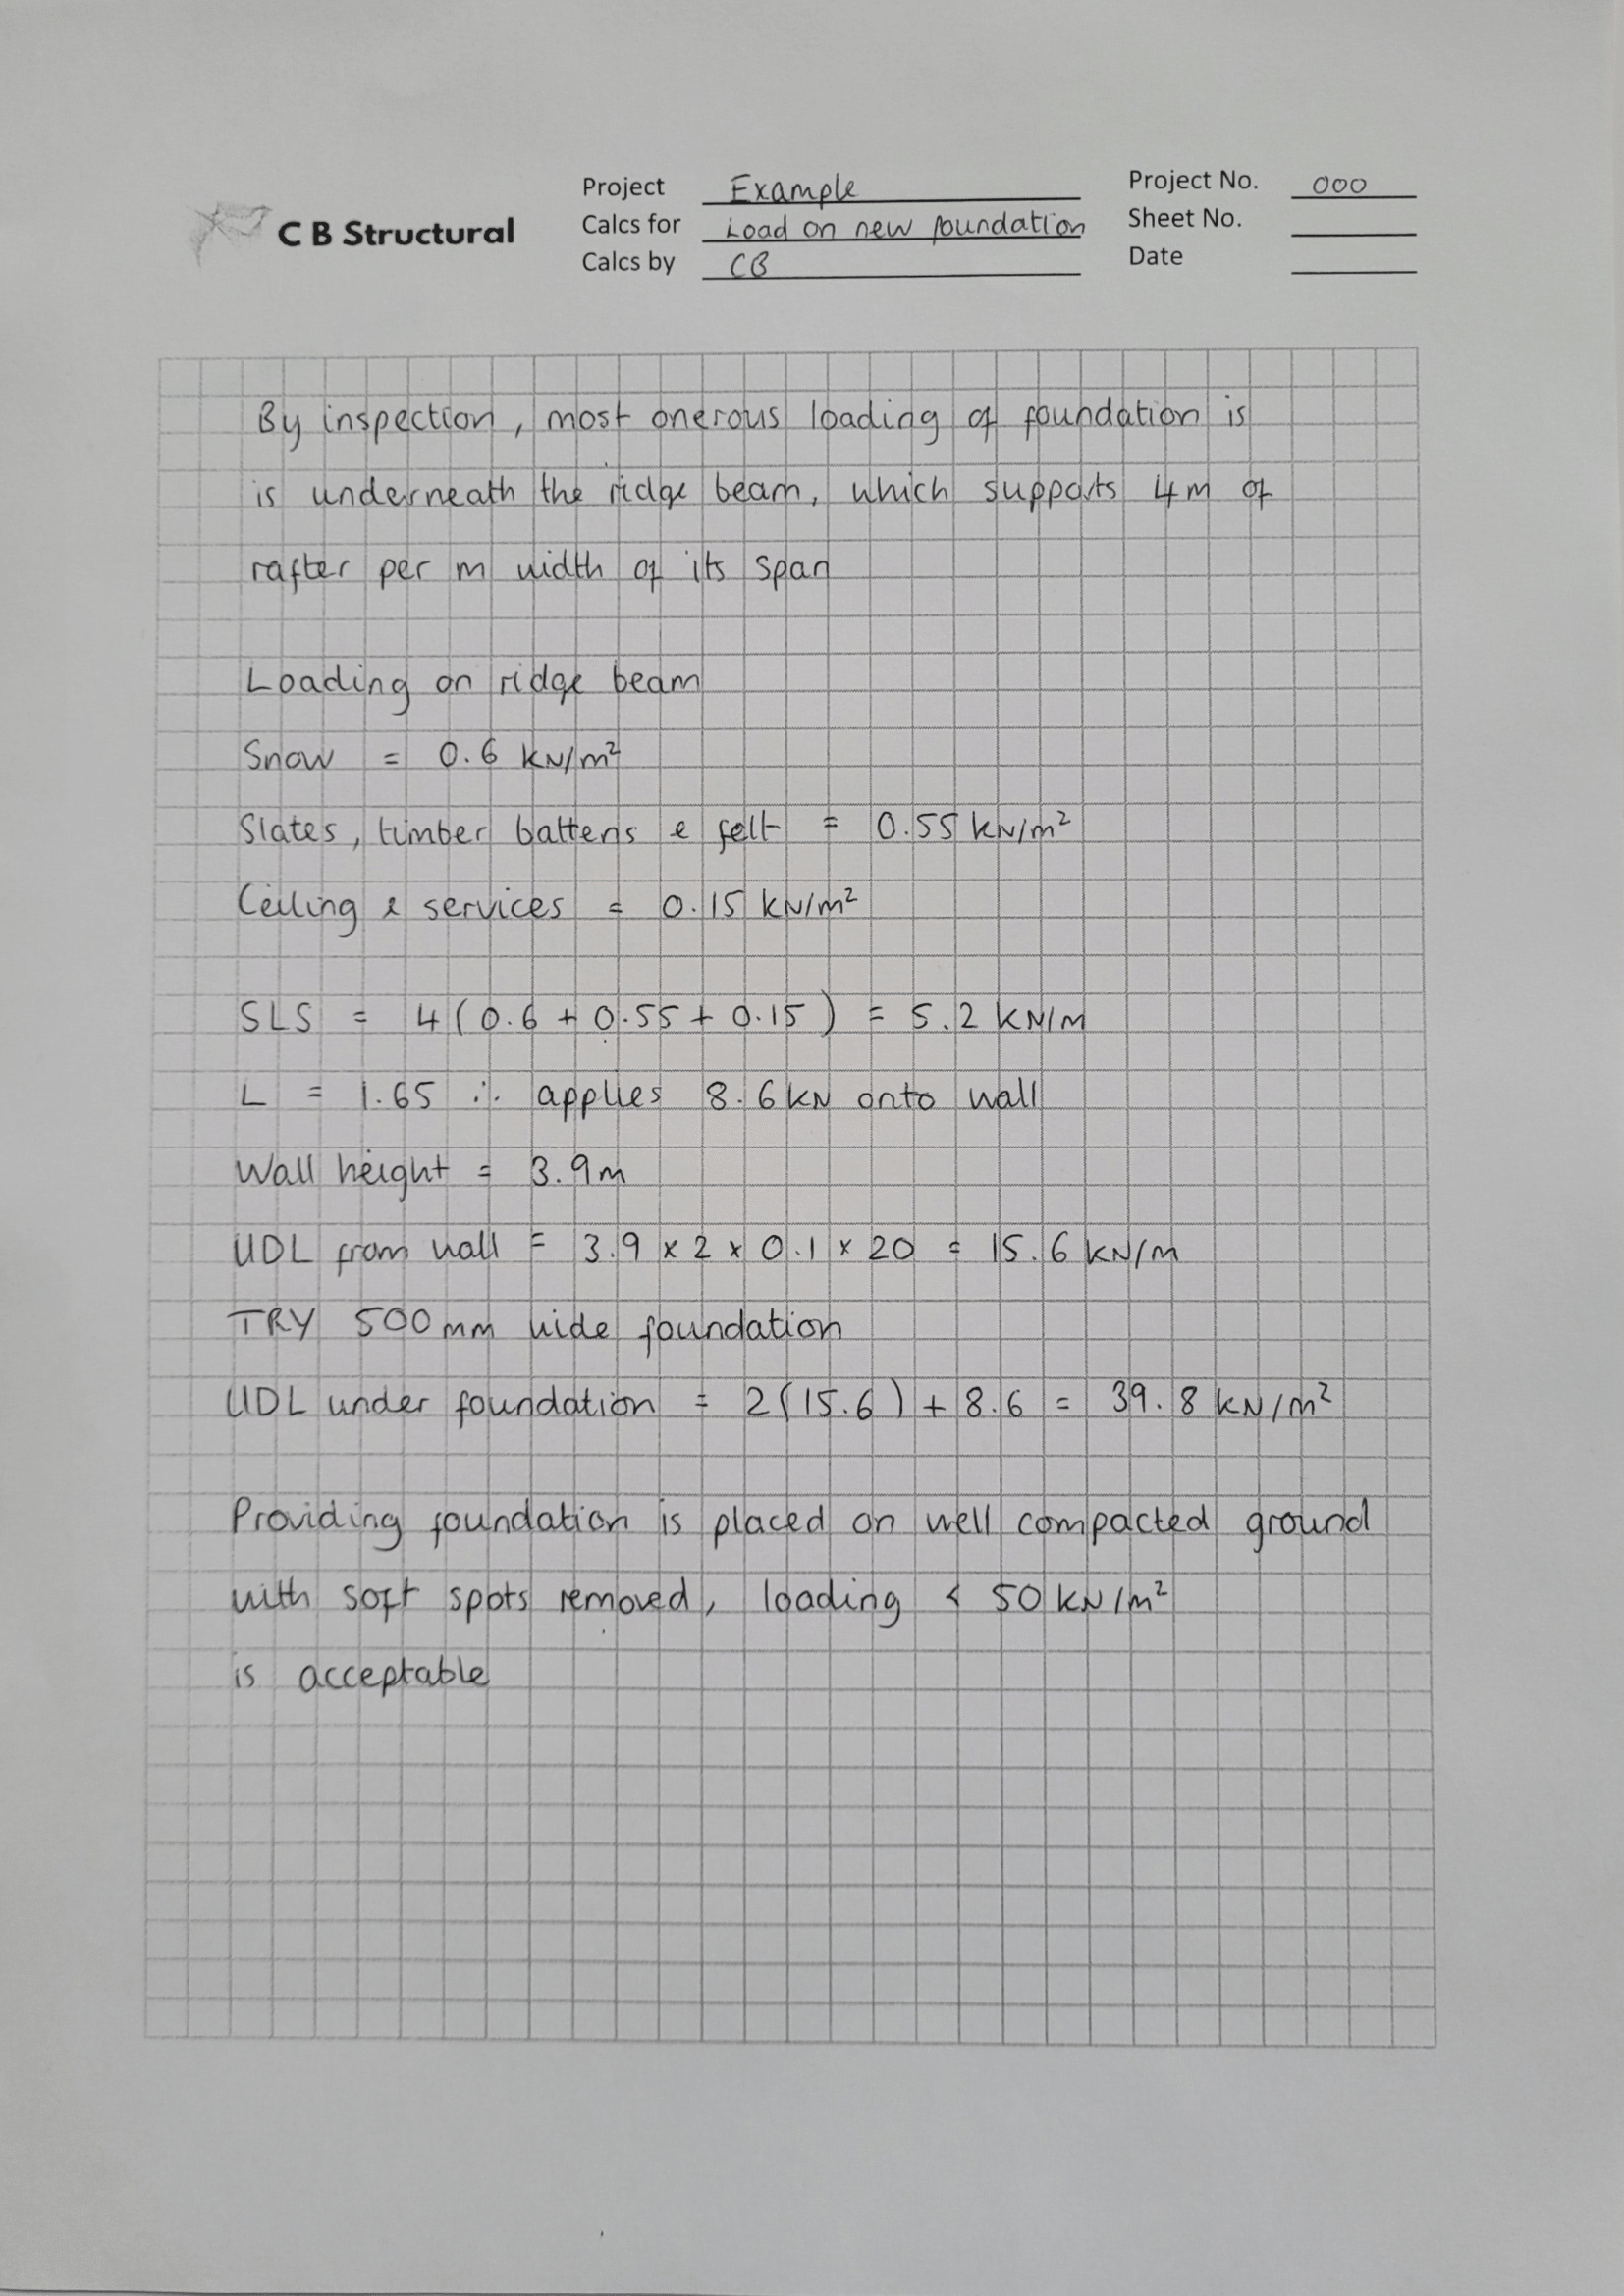 C B Structural
Project Example
Calcs for Load on new foundation
Calcs by CB
Project No. 000
Sheet No.
Date
By inspection, most onerous loading of foundation is
is underneath the ridge beam, which supports 4m of
rafter per m width of its span
Loading on ridge beam
Snow = 0.6 kN/m²
Slates, timber battens & felt = 0.55 kN/m²
Ceiling & services = 0.15 kN/m²
SLS = 4(0.6 + 0.55 + 0.15) = 5.2 kN/m
L = 1.65 ∴ applies 8.6kN onto wall
Wall height = 3.9m
UDL from wall = 3.9 x 2 x 0.1 x 20 = 15.6 kN/m
TRY 500mm wide foundation
UDL under foundation = 2(15.6) + 8.6 = 39.8 kN/m²
Providing foundation is placed on well compacted ground
with soft spots removed, loading < 50 kN/m²
is acceptable